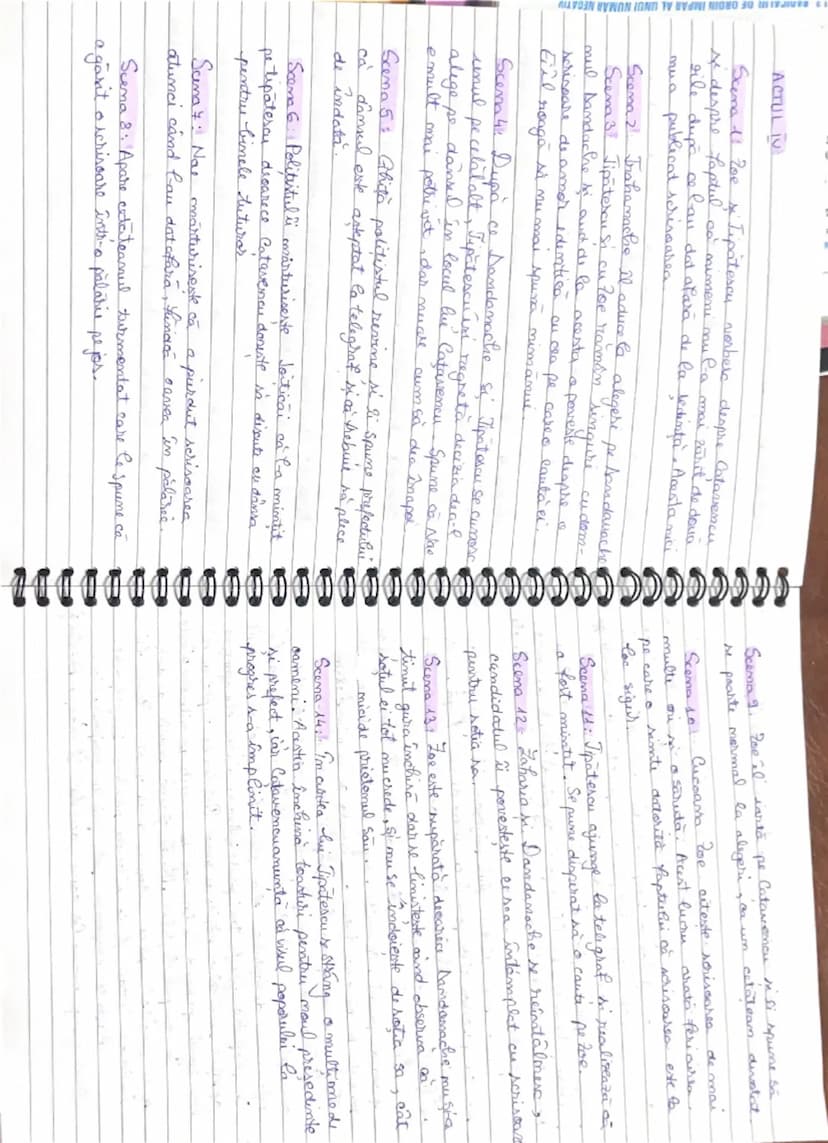 RADICALUL DE ORDIN IMPAR AL UNUI NUMĂR NEGATIV
ACTUL IV
Scena 1: Zoe și Tipătescu vorbesc despre Catavencu
și despre faptul că nimeni nu l-a mai zărit de două
zile după ce l-au dat afară de la ședință. Acesta nici
nu a publicat scrisoarea.
Scena 2: Trahanache îl aduce la alegeri pe Dandanache
Scena 3: Tipătescu și cu Zoe rămân singuri cu dom-
nul Dandache și aud de la acesta o poveste despre o
scrisoare de amor identică cu cea pe care o caută ei.
Ei îl roagă să nu mai spună nimănui.
Scena 4: După ce Dandanache și Tipătescu se cunosc
unul pe celălalt, Tipătescu își regretă decizia de a-l
alege pe dânsul în locul lui Cațavencu. Spune că Nae
e mult mai potrivit, dar nu are cum să dea înapoi
Scena 5: Ghiță polițistul revine și îi spune prefectului
că dânsul este așteptat la telegraf și că trebuie să plece
de îndată.
Scena 6: Polițistul îi mărturisește Joițicăi că l-a mințit
pe tipătescu deoarece Catavencu dorește să discute cu dânsa
pentru binele tuturor
Scena 7: Nae mărturisește că a pierdut scrisoarea
atunci când l-au dat afară, fiindcă o avea în pălărie.
Scena 8: Apare cetățeanul turmentat care le spune că
a găsit o scrisoare într-o pălărie pe jos.
Scena 9: Zoe îl iartă pe Catavencu și îi spune să
se poarte normal la alegeri, ca un cetățean devotat.
Scena 10: Cucoana Zoe citește scrisoarea de mai
multe ori și o sărută. Acest lucru arată fericirea
pe care o simte datorită faptului că scrisoarea este la
loc sigur.
Scena 11: Tipătescu ajunge la telegraf și realizează că
a fost mințit. Se pune disperat să o caute pe Zoe.
Scena 12: Zaharia și Dandanache se reîntâlnesc,
candidatul îi povestește ce s-a întâmplat cu scrisoarea
pentru soția sa.
Scena 13: Zoe este supărată deoarece Dandanache nu și-a
ținut gura închisă dar se liniștește când observă că
soțul ei tot nu crede, și nu se îndoiește de soția sa, cât
nici de prietenul său.
Scena 14: În curtea lui Tipătescu se strâng o mulțime de
oameni. Aceștia închină toasturi pentru noul președinte
și prefect, iar Catavencu anunță că visul poporului la
progres s-a împlinit.